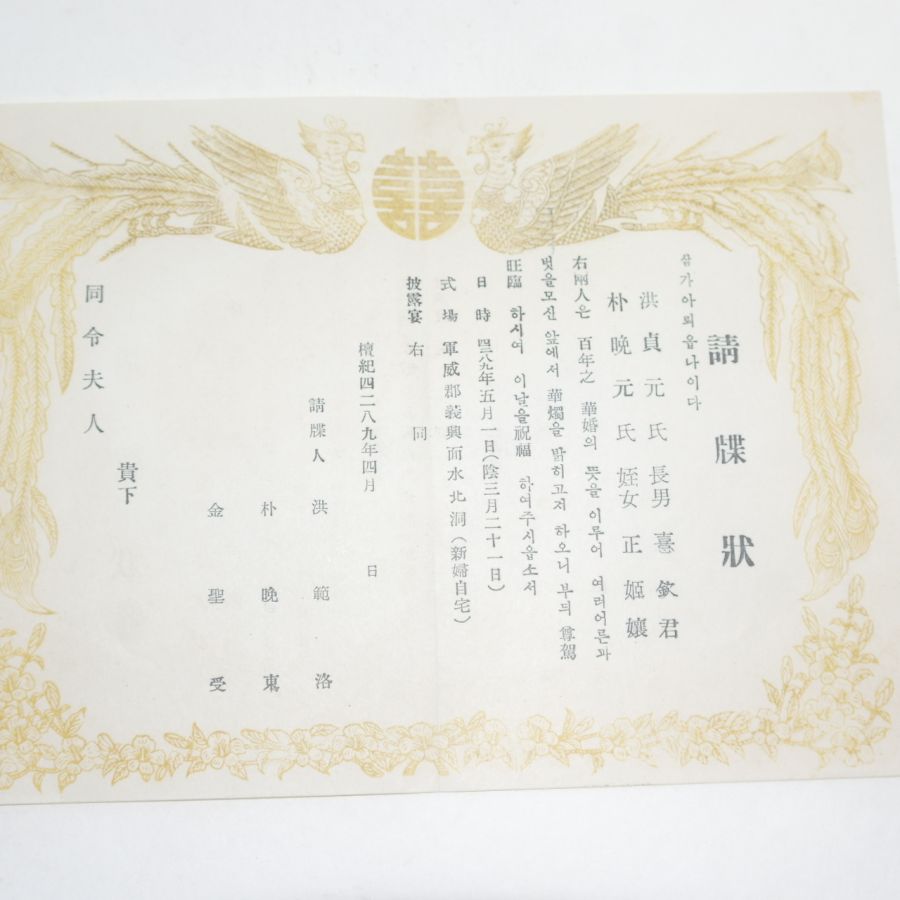 囍
請牒狀
삼가아뢰옵나이다
洪貞元氏 長男 憙欽君
朴晚元氏 姪女 正姬孃
右兩人은 百年之 華婚의 뜻을 이루어 여러어른과
벗을모신 앞에서 華燭을 밝히고저 하오니 부듸 尊駕
旺臨 하시여 이날을祝福 하여주시옵소서
日時 四二八九年五月一日(陰三月二十一日)
式場 軍威郡義興面水北洞(新婦自宅)
披露宴 右同
檀紀四二八九年四月 日
請牒人 洪範洛
朴晚東
金聖受
貴下
同令夫人